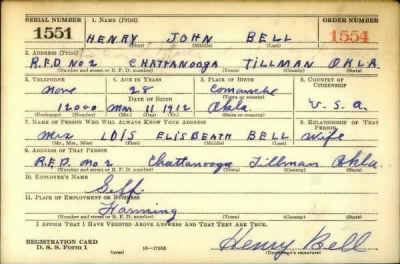 SERIAL NUMBER 1. NAME (Print) ORDER NUMBER
1551 HENRY JOHN BELL 1554
(First) (Middle) (Last)
2. ADDRESS (Print)
R.F.D. NO 2 CHATTANOOGA TILLMAN OKLA.
(Number and street or R. F. D. number) (Town) (County) (State)
3. TELEPHONE 4. AGE IN YEARS 5. PLACE OF BIRTH 6. COUNTRY OF CITIZENSHIP
none 28 Comanche
DATE OF BIRTH (Town or county)
Mar 11 1912 Okla. U.S.A.
(Exchange) (Number) (Mo.) (Day) (Yr.) (State or country)
7. NAME OF PERSON WHO WILL ALWAYS KNOW YOUR ADDRESS 8. RELATIONSHIP OF THAT PERSON
Mrs LOIS ELISBEATH BELL Wife
(Mr., Mrs., Miss) (First) (Middle) (Last)
9. ADDRESS OF THAT PERSON
R.F.D. no 2 Chattanooga Tillman Okla
(Number and street or R. F. D. number) (Town) (County) (State)
10. EMPLOYER'S NAME
Self.
11. PLACE OF EMPLOYMENT OR BUSINESS
Farming
(Number and street or R. F. D. number) (Town) (County) (State)
I AFFIRM THAT I HAVE VERIFIED ABOVE ANSWERS AND THAT THEY ARE TRUE.
REGISTRATION CARD
D. S. S. Form 1 (over) Henry Bell